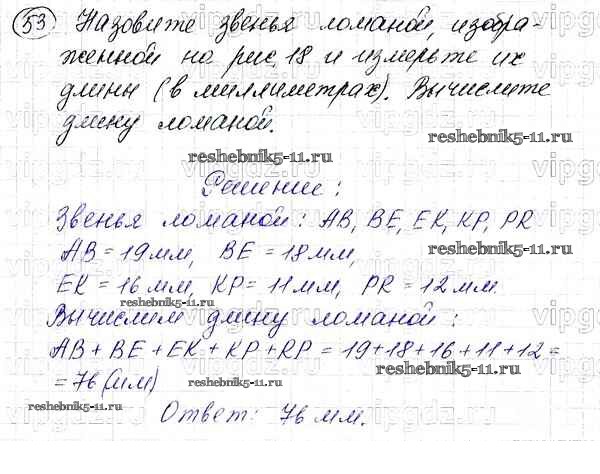 53 Назовите звенья ломаной, изобра-
женной на рис. 18 и измерьте их
длины (в миллиметрах). Вычислите
длину ломаной.
reshebnik5-11.ru
reshebnik5-11.ru
Решение:
Звенья ломаной: AB, BE, EK, KP, PR
AB = 19мм, BE = 18мм,
reshebnik5-11.ru
EK = 16мм, KP = 11мм, PR = 12мм.
reshebnik5-11.ru
Вычислим длину ломаной:
AB + BE + EK + KP + RP = 19+18+16+11+12 =
= 76 (мм)
reshebnik5-11.ru
reshebnik5-11.ru
Ответ: 76 мм.